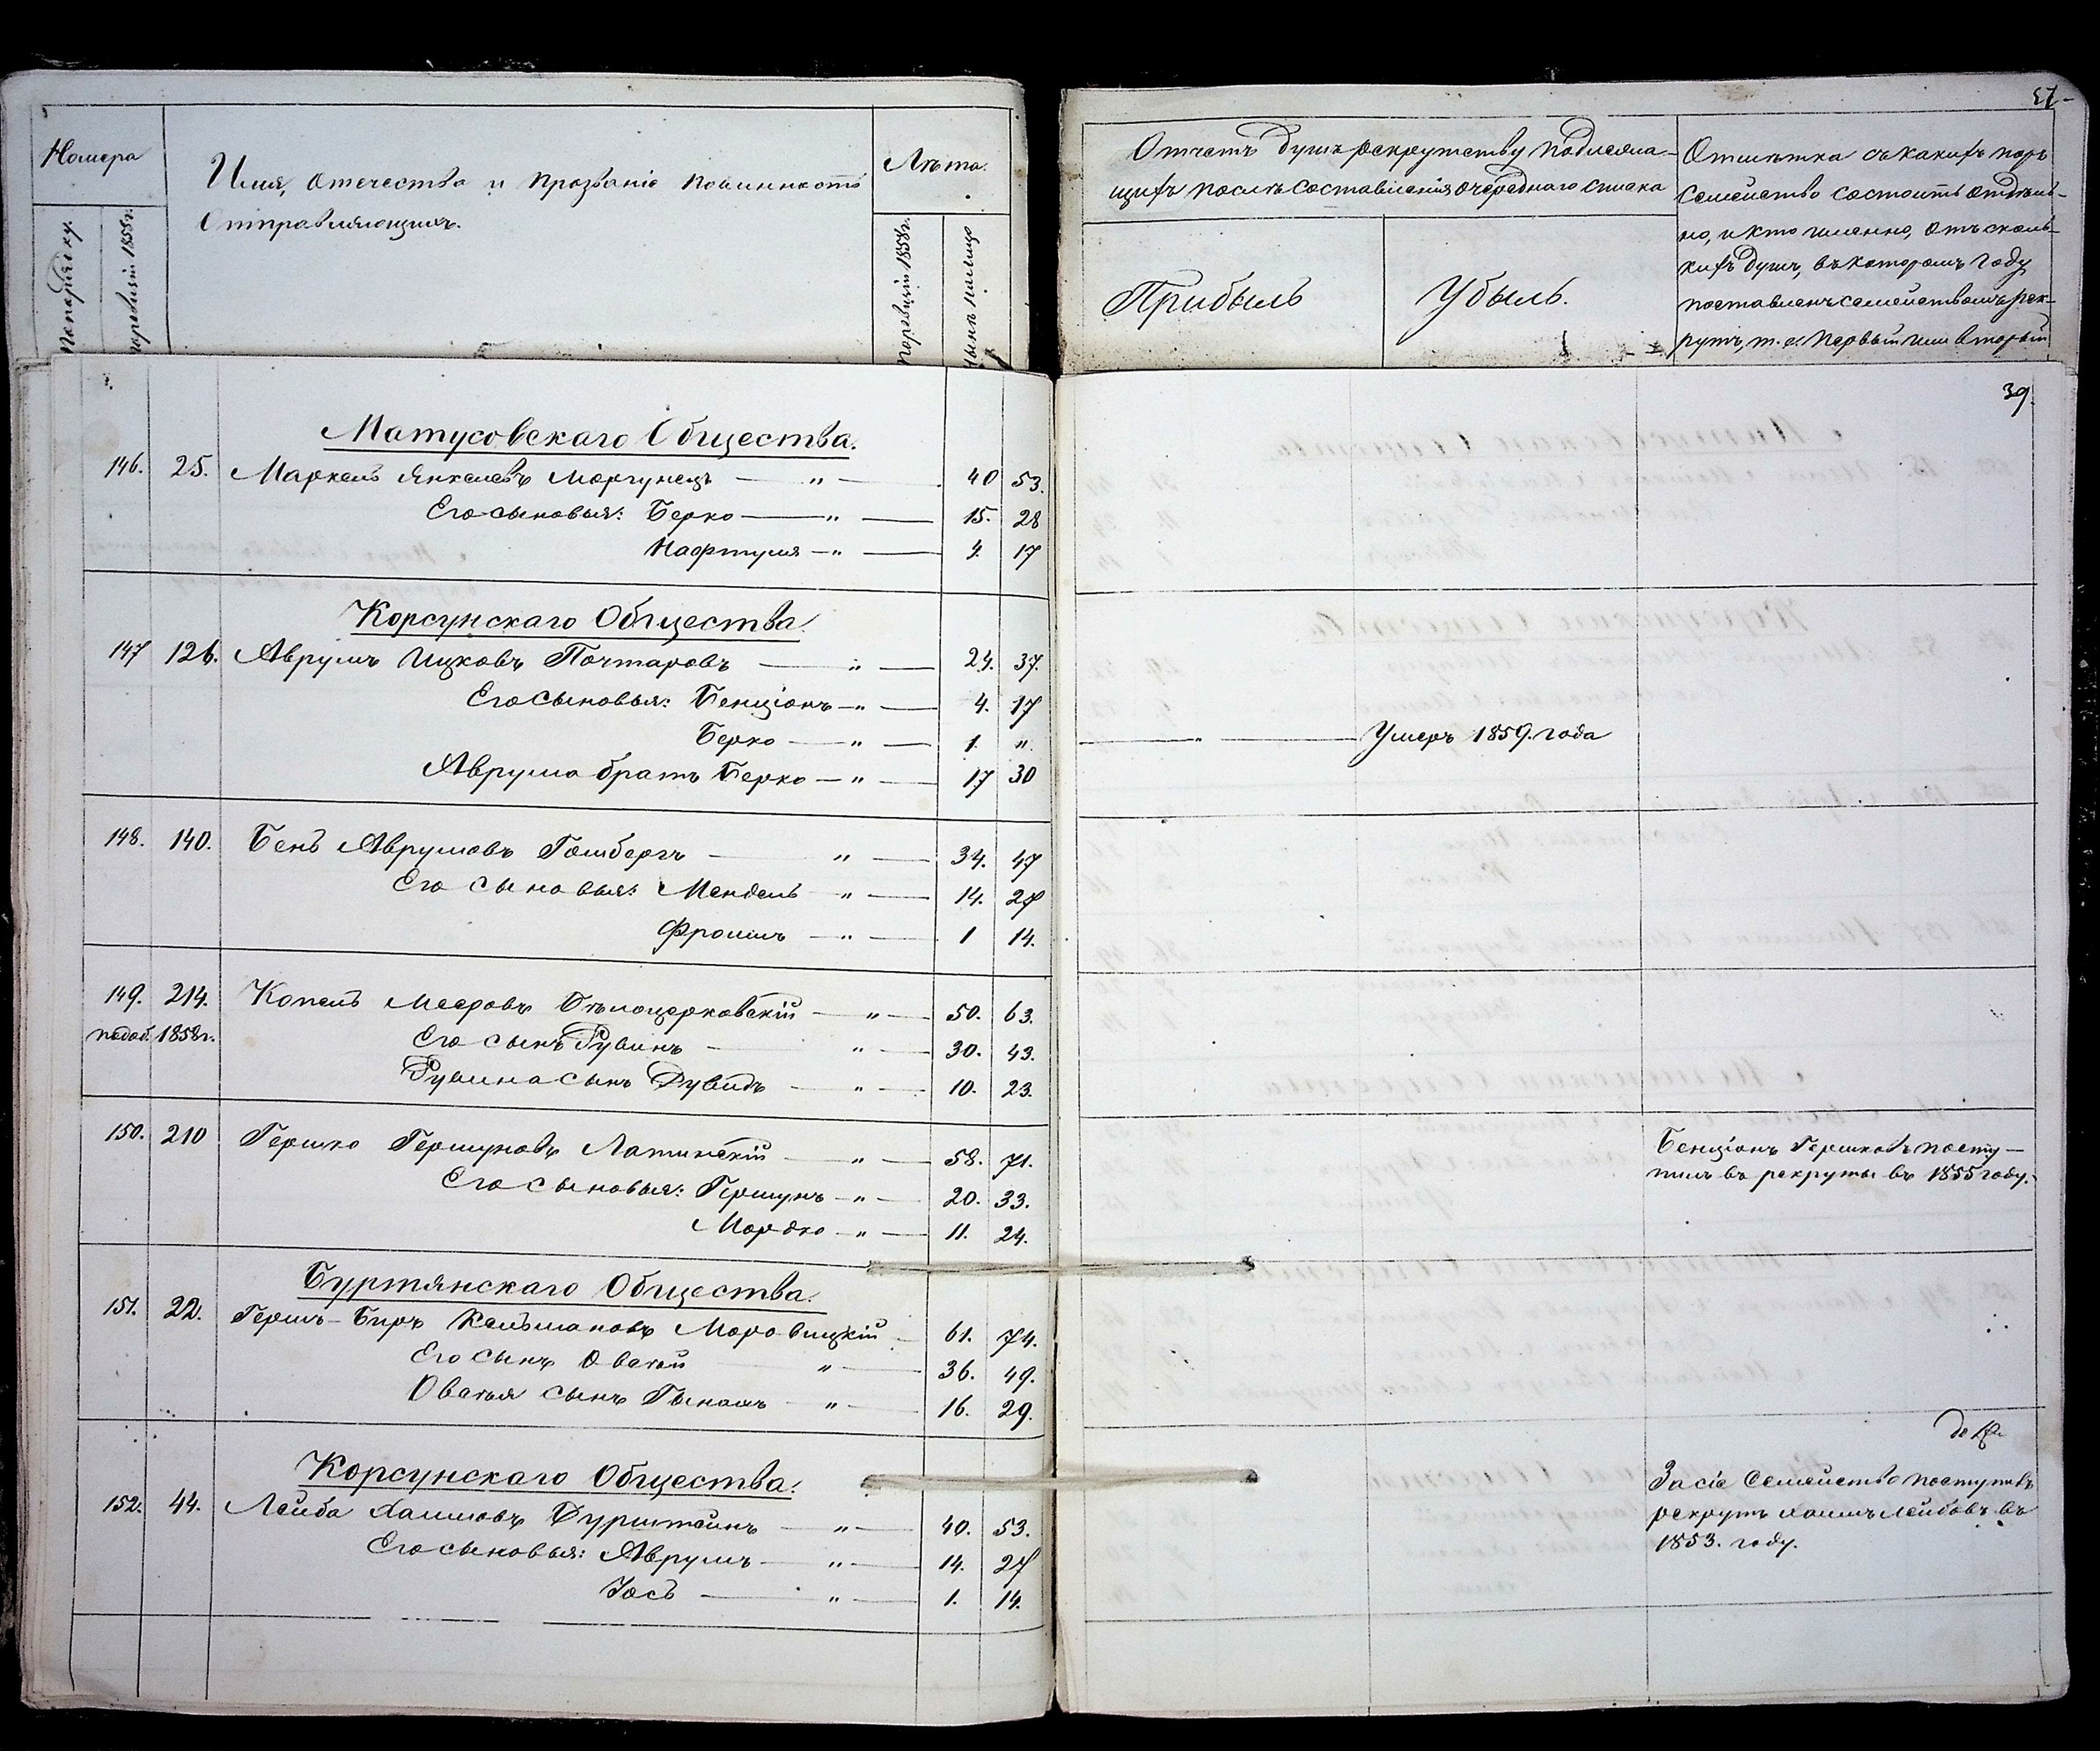 Номера
По порядку.
По ревизіи 1858 г.
Имя, отечество и прозваніе повинность
отправляющихъ.
Лѣта.
По ревизіи 1858г.
Нынѣ
37
Отчетъ душъ рекрутству подлежа-
щихъ послѣ составленія очереднаго списка
Прибыль
Убыль.
Отмѣтка съ какихъ поръ
семейство состоитъ отдѣль-
но, и кто именно, отъ сколь-
кихъ душъ, въ которомъ году
поставленъ семействомъ рек-
рутъ, т. е. первый или вторый
39.
Матусовскаго Общества.
146. 25. Маркель Янкелевъ Моргунецъ — " — 40 53.
Его сыновья: Берко — " — 15. 28
Нафтуля — " — 4. 17
Корсунскаго Общества
147 126. Аврумъ Ицковъ Почтаровъ — " — 24. 37.
Его сыновья: Бенціонъ — " — 4. 17
Берко — " — 1. " — " — Умеръ 1859. года
Аврума братъ Берко — " — 17 30
148. 140. Бень Аврумовъ Гольбергъ — " — 34. 47
Его сыновья: Мендель " — 14. 27
Фроимъ — " — 1 14.
149. 214. Копель Мееровъ Бѣлоцерковскій — " — 50. 63.
1858г. Его сынъ Рувинъ — " — 30. 43.
Рувина сынъ Дувидъ — " — 10. 23.
150. 210 Гершко Гершуновъ Латинскій — " — 58. 71.
Его сыновья: Гершунъ — " — 20. 33.
Мордко — " — 11. 24.
Бенціонъ Гершковъ посту-
пилъ въ рекруты въ 1855 году.
Буртянскаго Общества.
151. 22. Гершъ-Беръ Кельмановъ Моровицкій — 61. 74.
Его сынъ Овсѣй " — 36. 49.
Овсѣя сынъ " — 16. 29.
Корсунскаго Общества.
152. 44. Лейба Хаимовъ Бурштейнъ — " — 40. 53.
Его сыновья: Аврумъ — " — 14. 27
Іось — " — 1. 14.
За сіе семейство поступилъ
рекрутъ Хаимъ Лейбовъ въ
1853. году.